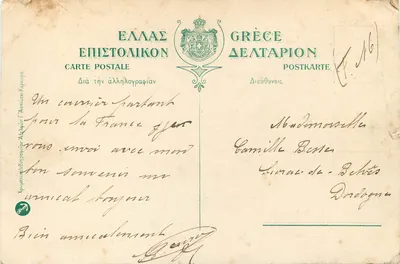 ΕΛΛΑΣ GRÈCE
ΕΠΙΣΤΟΛΙΚΟΝ ΔΕΛΤΑΡΙΟΝ
CARTE POSTALE POSTKARTE
Διὰ τὴν ἀλληλογραφίαν
Διεύθυνσις
Un courrier partant
pour la France je
vous envoi avec mon
bon souvenir un
amical bonjour
Bien amicalement
Mademoiselle
Camille
de
Dordogne